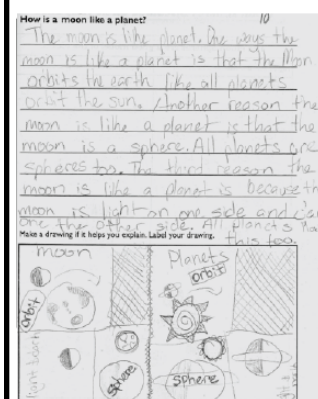 How is a moon like a planet? 10
The moon is like planet. One ways the
moon is like a planet is that the Moon
orbits the earth like all planets
orbit the sun. Another reason the
moon is like a planet is that the
moon is a sphere. All planets are
spheres too. The third reason the
moon is like a planet is because th
moon is light on one side and
one the other side. All planets
this too.
Make a drawing if it helps you explain. Label your drawing.
moon Planets
orbit
orbit
sphere
sphere